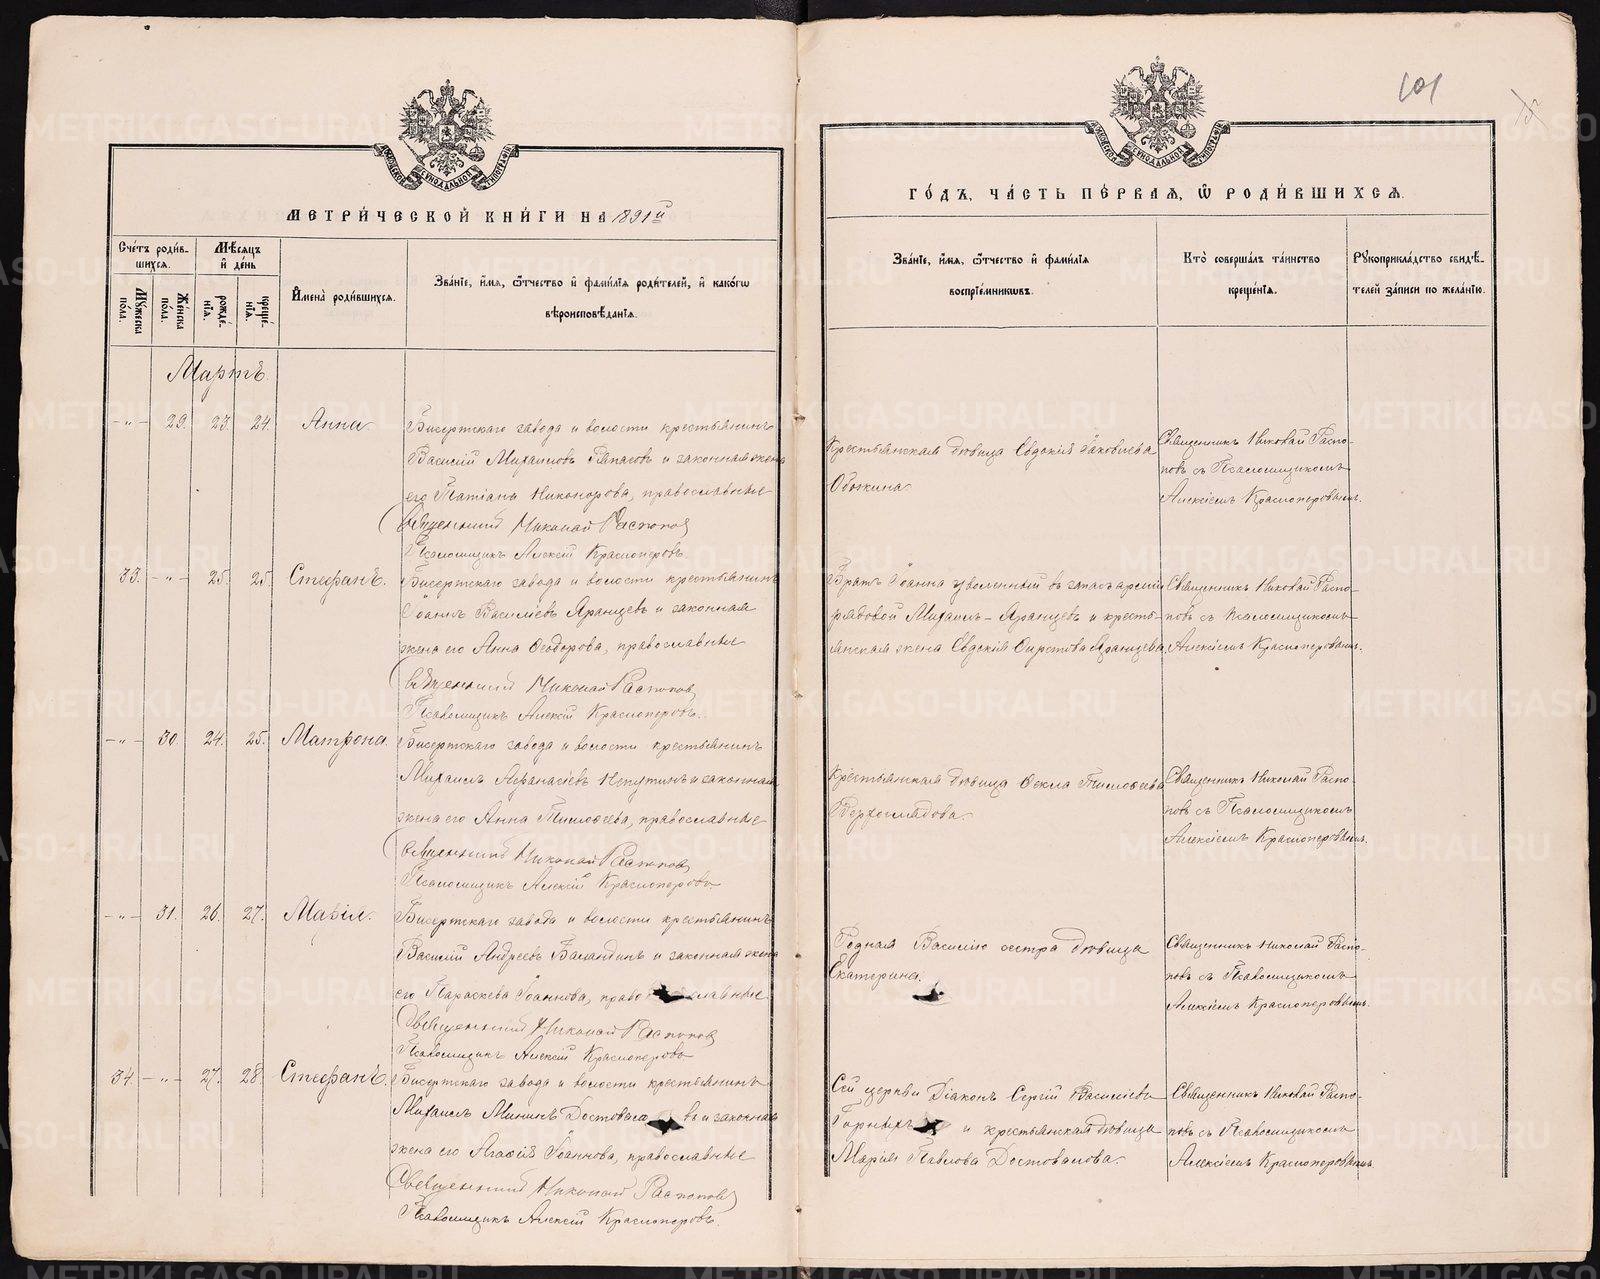 МЕТРИ́ЧЕСКОЙ КНИ́ГИ НА 1891й
Сче́тъ роди́в-
шихся.
Мѣ́сяцъ
и де́нь
Му́жеска
по́ла.
Же́нска
по́ла.
рожде́-
нїя.
креще́-
нїя.
И҆мена̀ роди́вшихся.
Зва́нїе, и҆́мя, ѻ҆́тчество и҆ фами́лїя роди́телей, и҆ како́гѡ
вѣроисповѣ́данїя.
Мартъ.
-"- 29. 23. 24. Анна.
Бисертскаго завода и волости крестьянинъ
Василій Михаиловъ и законная жена
его Татіана Никонорова, православные
Священникъ Николай Распоповъ
Псаломщикъ Алексій Красноперовъ.
33. -"- 25. 25. Стефанъ.
Бисертскаго завода и волости крестьянинъ
Іоаннъ Василіевъ Яранцевъ и законная
жена его Анна Ѳеодорова, православные
Священникъ Николай Распоповъ
Псаломщикъ Алексій Красноперовъ.
-"- 30. 24. 25. Матрона.
Бисертскаго завода и волости крестьянинъ
Михаилъ Аѳанасіевъ и законная
жена его Анна Тимоѳеева, православные
Священникъ Николай Распоповъ
Псаломщикъ Алексій Красноперовъ
-"- 31. 26. 27. Марія.
Бисертскаго завода и волости крестьянинъ
Василій Андреевъ Баландинъ и законная жена
его Параскева Іоаннова, православные
Священникъ Николай Распоповъ
Псаломщикъ Алексій Красноперовъ
34. -"- 27. 28. Стефанъ.
Бисертскаго завода и волости крестьянинъ
Михаилъ Мининъ Достоваловъ и законная
жена его Агаѳія Іоаннова, православные
Священникъ Николай Распоповъ
Псаломщикъ Алексій Красноперовъ.
101
ГО́ДЪ, ЧА́СТЬ ПЕ́РВАЯ, Ѽ РОДИ́ВШИХСЯ.
Зва́нїе, и҆́мя, ѻ҆́тчество и҆ фами́лїя
воспрїе́мникѡвъ.
Кто̀ соверша́лъ та́инство
креще́нїя.
Рꙋкоприкла́дство свидѣ́-
телей за́писи по жела́нїю.
Крестьянская дѣвица Евдокія Іаковлева
Обожина
Священникъ Николай Распо-
повъ съ Псаломщикомъ
Алексіемъ Красноперовымъ.
Братъ Іоанна уволенный въ запасъ арміи
рядовой Михаилъ Яранцевъ и кресть-
янская жена Евдокія Яранцева.
Священникъ Николай Распо-
повъ съ Псаломщикомъ
Алексіемъ Красноперовымъ.
Крестьянская дѣвица Ѳекла Тимоѳеева
Священникъ Николай Распо-
повъ съ Псаломщикомъ
Алексіемъ Красноперовымъ.
Родная Василію сестра дѣвица
Екатерина.
Священникъ Николай Распо-
повъ съ Псаломщикомъ
Алексіемъ Красноперовымъ.
Сей церкви Діаконъ Сергій Василіевъ
Горныхъ и крестьянская дѣвица
Марія Павлова Достовалова.
Священникъ Николай Распо-
повъ съ Псаломщикомъ
Алексіемъ Красноперовымъ.
METRIKI.GASO-URAL.RU